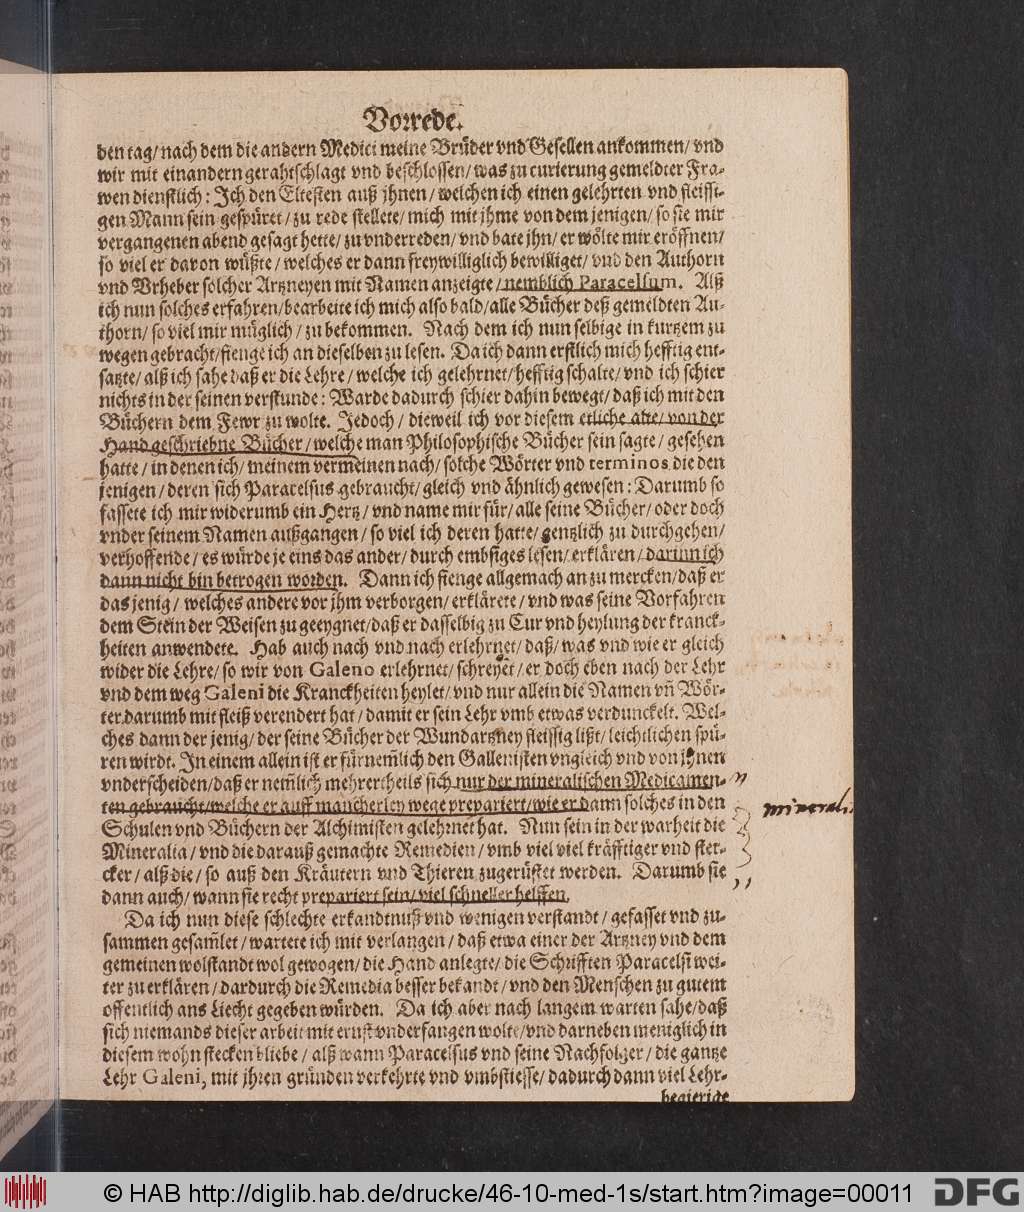 Vorrede.
den tag/ nach dem die andern Medici meine Brüder vnd Gesellen ankommen/ vnd
wir mit einandern gerahtschlagt vnd beschlossen/ was zu curierung gemeldter Fra-
wen dienstlich: Ich den Eltesten auß jhnen/ welchen ich einen gelehrten vnd fleissi-
gen Mann sein gespüret/ zu rede stellete/ mich mit jhme von dem jenigen/ so sie mir
vergangenen abend gesagt hette/ zu vnderreden/ vnd bate jhn/ er wölte mir eröffnen/
so viel er davon wüßte/ welches er dann freywilliglich bewilliget/ vnd den Authorn
vnd Vrheber solcher Artzneyen mit Namen anzeigte/ nemblich Paracelsum. Alß
ich nun solches erfahren/ bearbeite ich mich also bald/ alle Bücher deß gemeldten Au-
thorn/ so viel mir müglich/ zu bekommen. Nach dem ich nun selbige in kurtzem zu
wegen gebracht/ fienge ich an dieselben zu lesen. Da ich dann erstlich mich hefftig ent-
satzte/ alß ich sahe daß er die Lehre/ welche ich gelehrnet/ hefftig schalte/ vnd ich schier
nichts in der seinen verstunde: Warde dadurch schier dahin bewegt/ daß ich mit den
Büchern dem Fewr zu wolte. Jedoch/ dieweil ich vor diesem etliche alte/ von der
Hand geschriebne Bücher/ welche man Philosophische Bücher sein sagte/ gesehen
hatte/ in denen ich/ meinem vermeinen nach/ solche Wörter vnd terminos die den
jenigen/ deren sich Paracelsus gebraucht/ gleich vnd ähnlich gewesen: Darumb so
fassete ich mir widerumb ein Hertz/ vnd name mir für/ alle seine Bücher/ oder doch
vnder seinem Namen außgangen/ so viel ich deren hatte/ gentzlich zu durchgehen/
verhoffende/ es würde je eins das ander/ durch embsiges lesen/ erklären/ darinn ich
dann nicht bin betrogen worden. Dann ich fienge allgemach an zu mercken/ daß er
das jenig/ welches andere vor jhm verborgen/ erklärete/ vnd was seine Vorfahren
dem Stein der Weisen zu geeygnet/ daß er dasselbig zu Cur vnd heylung der kranck-
heiten anwendete. Hab auch nach vnd nach erlehrnet/ daß/ was vnd wie er gleich
wider die Lehre/ so wir von Galeno erlehrnet/ schreyet/ er doch eben nach der Lehr
vnd dem weg Galeni die Kranckheiten heylet/ vnd nur allein die Namen vñ Wör-
ter darumb mit fleiß verendert hat/ damit er sein Lehr vmb etwas verdunckelt. Wel-
ches dann der jenig/ der seine Bücher der Wundartzney fleissig lißt/ leichtlichen spü-
ren wirdt. In einem allein ist er fürnem̃lich den Gallenisten vngleich vnd von jhnen
vnderscheiden/ daß er nem̃lich mehrertheils sich nur der mineralischen Medicamen-
ten gebraucht/ welche er auff mancherley wege prepariert/ wie er dann solches in den
mineralia
Schulen vnd Büchern der Alchimisten gelehrnet hat. Nun sein in der warheit die
Mineralia/ vnd die darauß gemachte Remedien/ vmb viel viel kräfftiger vnd ster-
cker/ alß die/ so auß den Kräutern vnd Thieren zugerüstet werden. Darumb sie
dann auch/ wann sie recht prepariert sein/ viel schneller helffen.
Da ich nun diese schlechte erkandtnuß vnd wenigen verstandt/ gefasset vnd zu-
sammen gesam̃let/ wartete ich mit verlangen/ daß etwa einer der Artzney vnd dem
gemeinen wolstandt wol gewogen/ die Hand anlegte/ die Schrifften Paracelsi wei-
ter zu erklären/ dardurch die Remedia besser bekandt/ vnd den Menschen zu gutem
offentlich ans Liecht gegeben würden. Da ich aber nach langem warten sahe/ daß
sich niemands dieser arbeit mit ernst vnderfangen wolte/ vnd darneben meniglich in
diesem wohn stecken bliebe/ alß wann Paracelsus vnd seine Nachfolger/ die gantze
Lehr Galeni, mit jhren gründen verkehrte vnd vmbstiesse/ dadurch dann viel Lehr-
begierige
© HAB http://diglib.hab.de/drucke/46-10-med-1s/start.htm?image=00011
DFG